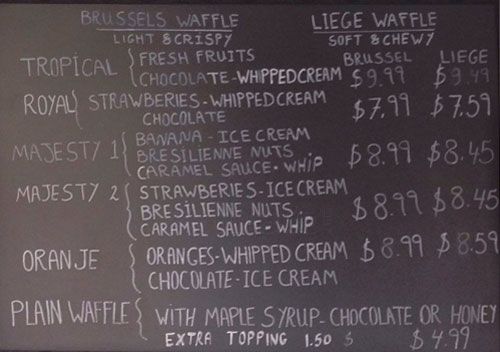 BRUSSELS WAFFLE LIEGE WAFFLE
LIGHT & CRISPY SOFT & CHEWY
TROPICAL { FRESH FRUITS BRUSSEL LIEGE
CHOCOLATE - WHIPPED CREAM $9.99 $9.49
ROYAL { STRAWBERIES - WHIPPED CREAM $7,99 $7.59
CHOCOLATE
BANANA - ICE CREAM
MAJESTY 1 { BRESILIENNE NUTS $8.99 $8.45
CARAMEL SAUCE - WHIP
MAJESTY 2 { STRAWBERIES - ICE CREAM
BRESILIENNE NUTS $8.99 $8.45
CARAMEL SAUCE - WHIP
ORANJE { ORANGES - WHIPPED CREAM $8.99 $8.59
CHOCOLATE - ICE CREAM
PLAIN WAFFLE { WITH MAPLE SYRUP - CHOCOLATE OR HONEY
EXTRA TOPPING 1.50 $ $4.99